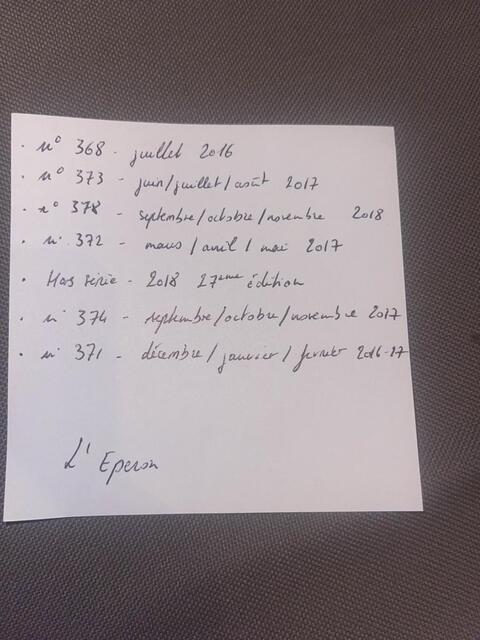 • n° 368 - juillet 2016
• n° 373 - juin/juillet/août 2017
• n° 378 - septembre/octobre/novembre 2018
• n° 372 - mars/avril/mai 2017
• Hors série - 2018 27eme édition
• n° 374 - septembre/octobre/novembre 2017
• n° 371 - décembre/janvier/fevrier 2016-17
L'Eperon